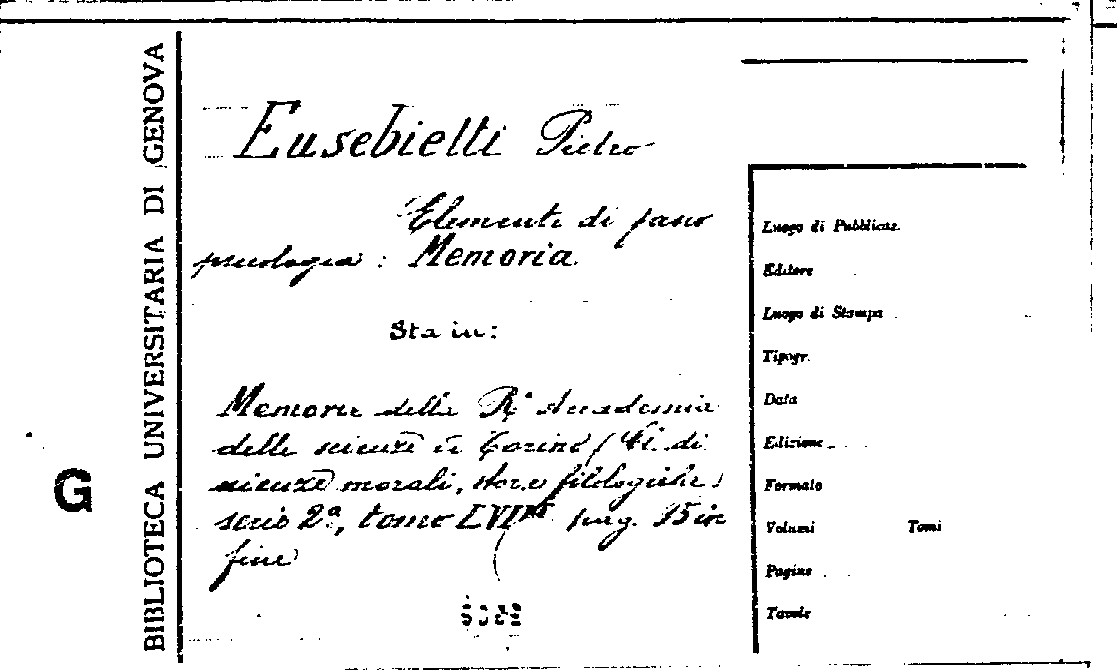 BIBLIOTECA UNIVERSITARIA DI GENOVA
G
Eusebietti Pietro
Elementi di
psicologia : Memoria.
Sta in:
Memorie della R. Accademia
delle scienze di Torino (Cl. di
scienze morali, stor. e filologiche)
serie 2ª, tomo LVI pag. 15 in
fine
Luogo di Pubblicaz.
Editore
Luogo di Stampa
Tipogr.
Data
Edizione
Formato
Volumi Tomi
Pagine
Tavole